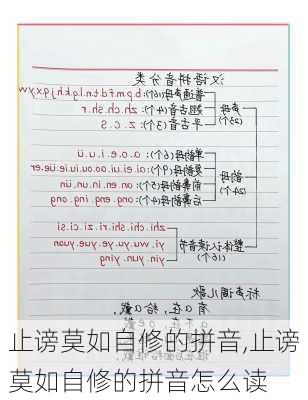 汉语拼音分类
普通声母(16个): b.p.m.f.d.t.n.l.g.k.h.j.q.x.y.w
声母 翘舌音(4个): zh.ch.sh.r
(23个) 平舌音(3个): z.c.s
单韵母(6个): a.o.e.i.u.ü
复韵母(9个): ai.ei.ui.ao.ou.iu.ie.üe.er
韵母 前鼻韵母(5个): an.en.in.un.ün
(24个) 后鼻韵母(4个): ang.eng.ing.ong
zhi.chi.shi.ri.zi.ci.si
整体认读音节 yi.wu.yu.ye.yue.yuan
(16个) yin.yun.ying
标声调儿歌
有a在,给a戴,
止谤莫如自修的拼音,止谤
莫如自修的拼音怎么读